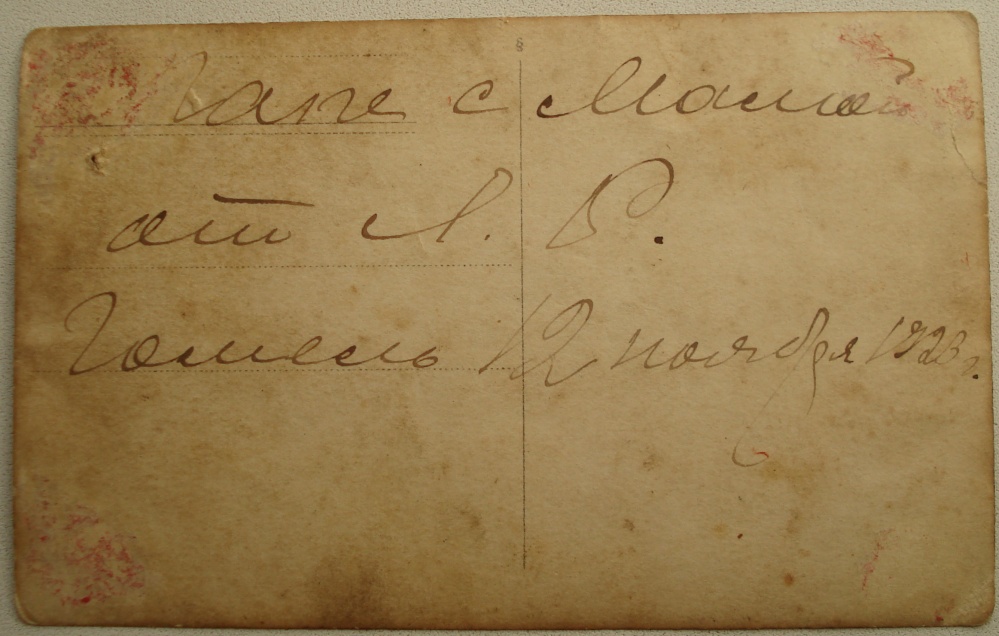 Папе с Мамой
от Л. В.
Гомель 12 ноября 1923 г.